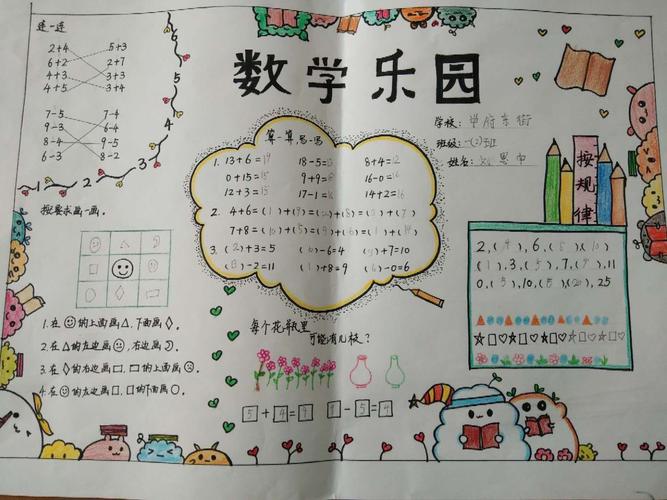 连一连
2+4 5+3
6+2 2+7
4+3 3+3
4+5 3+4
7-5 7-4
9-3 6-4
8-4 9-5
6-3 8-2
1 2 3 4 5 6
数学乐园
学校:
班级:一(2)班
姓名:
算一算,思一思
1. 13+6=19 18-5=13 8+4=12
0+15=15 9+9=18 16-0=16
12+3=15 17-1=16 14+2=16
2. 4+6=(1)+(9)=(2)+(8)=(3)+(7)
3. (2)+3=5 -6=4 +7=10
-2=11 (1)+8=9 -0=6
按规律
2,(4),6,(8)(10)
(1),3,(5),7,(9),11
0,(5),10, 25
按要求画一画。
1.在☺的上面画△,下面画◇。
2.在△的左边画☹,右边画
3.在◇的右边画□,□的上面画
4.在☺的左边画□,□的下面画○。
每个花瓶里
可能有几枝?
5+4=9 9-5=4